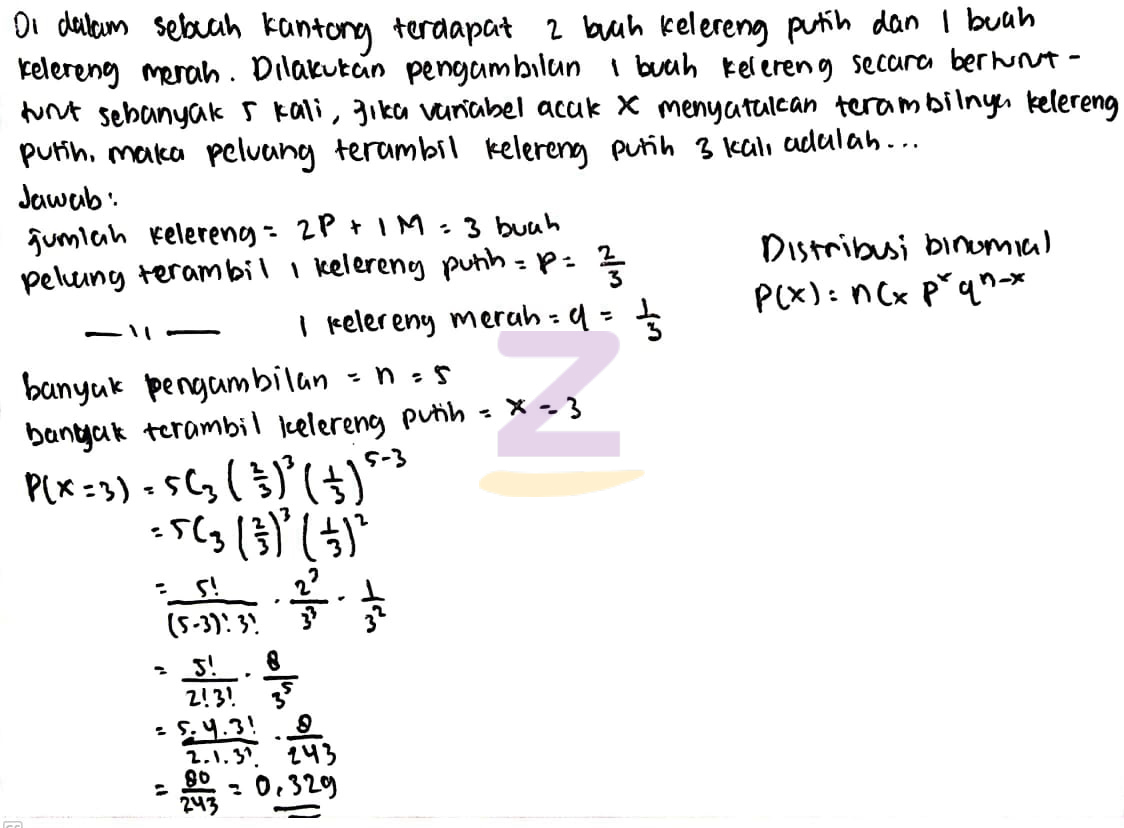 Di dalam sebuah kantong terdapat 2 buah kelereng putih dan 1 buah
kelereng merah. Dilakukan pengambilan 1 buah kelereng secara berturut-
turut sebanyak 5 kali, jika variabel acak X menyatakan terambilnya kelereng
putih, maka peluang terambil kelereng putih 3 kali adalah...
Jawab:
jumlah kelereng = 2P + 1M = 3 buah
peluang terambil 1 kelereng putih = p = 2/3
—"— 1 kelereng merah = q = 1/3
Distribusi binomial
P(x) = nCx p^x q^(n-x)
banyak pengambilan = n = 5
banyak terambil kelereng putih = x = 3
P(X=3) = 5C3 (2/3)^3 (1/3)^(5-3)
= 5C3 (2/3)^3 (1/3)^2
= 5!/((5-3)! 3!) . 2^3/3^3 . 1/3^2
= 5!/(2!3!) . 8/3^5
= 5.4.3!/(2.1.3!) . 8/243
= 80/243 = 0,329
Z